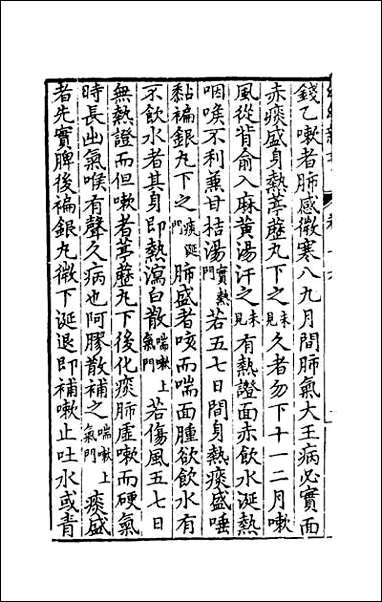 錢乙嗽者肺感微寒八九月間肺氣大王病必實面
赤痰盛身熱葶藶丸下之未見久者勿下十一二月嗽
風從背俞入麻黄湯汗之未見有熱證面赤飲水涎熱
咽喉不利兼甘桔湯實熱門若五七日間身熱痰盛唾
黏褊銀丸下之痰涎門肺盛者咳而喘面腫欲飲水有
不飲水者其身即熱瀉白散喘嗽上氣門若傷風五七日
無熱證而但嗽者葶藶丸下後化痰肺虚嗽而硬氣
時長出氣喉有聲久病也阿膠散補之喘嗽上氣門痰盛
者先實脾後褊銀丸微下涎退即補嗽止吐水或青